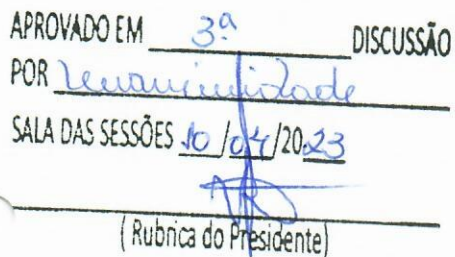 APROVADO EM 3ª DISCUSSÃO
POR unanimidade
SALA DAS SESSÕES 10/04/2023
(Rubrica do Presidente)